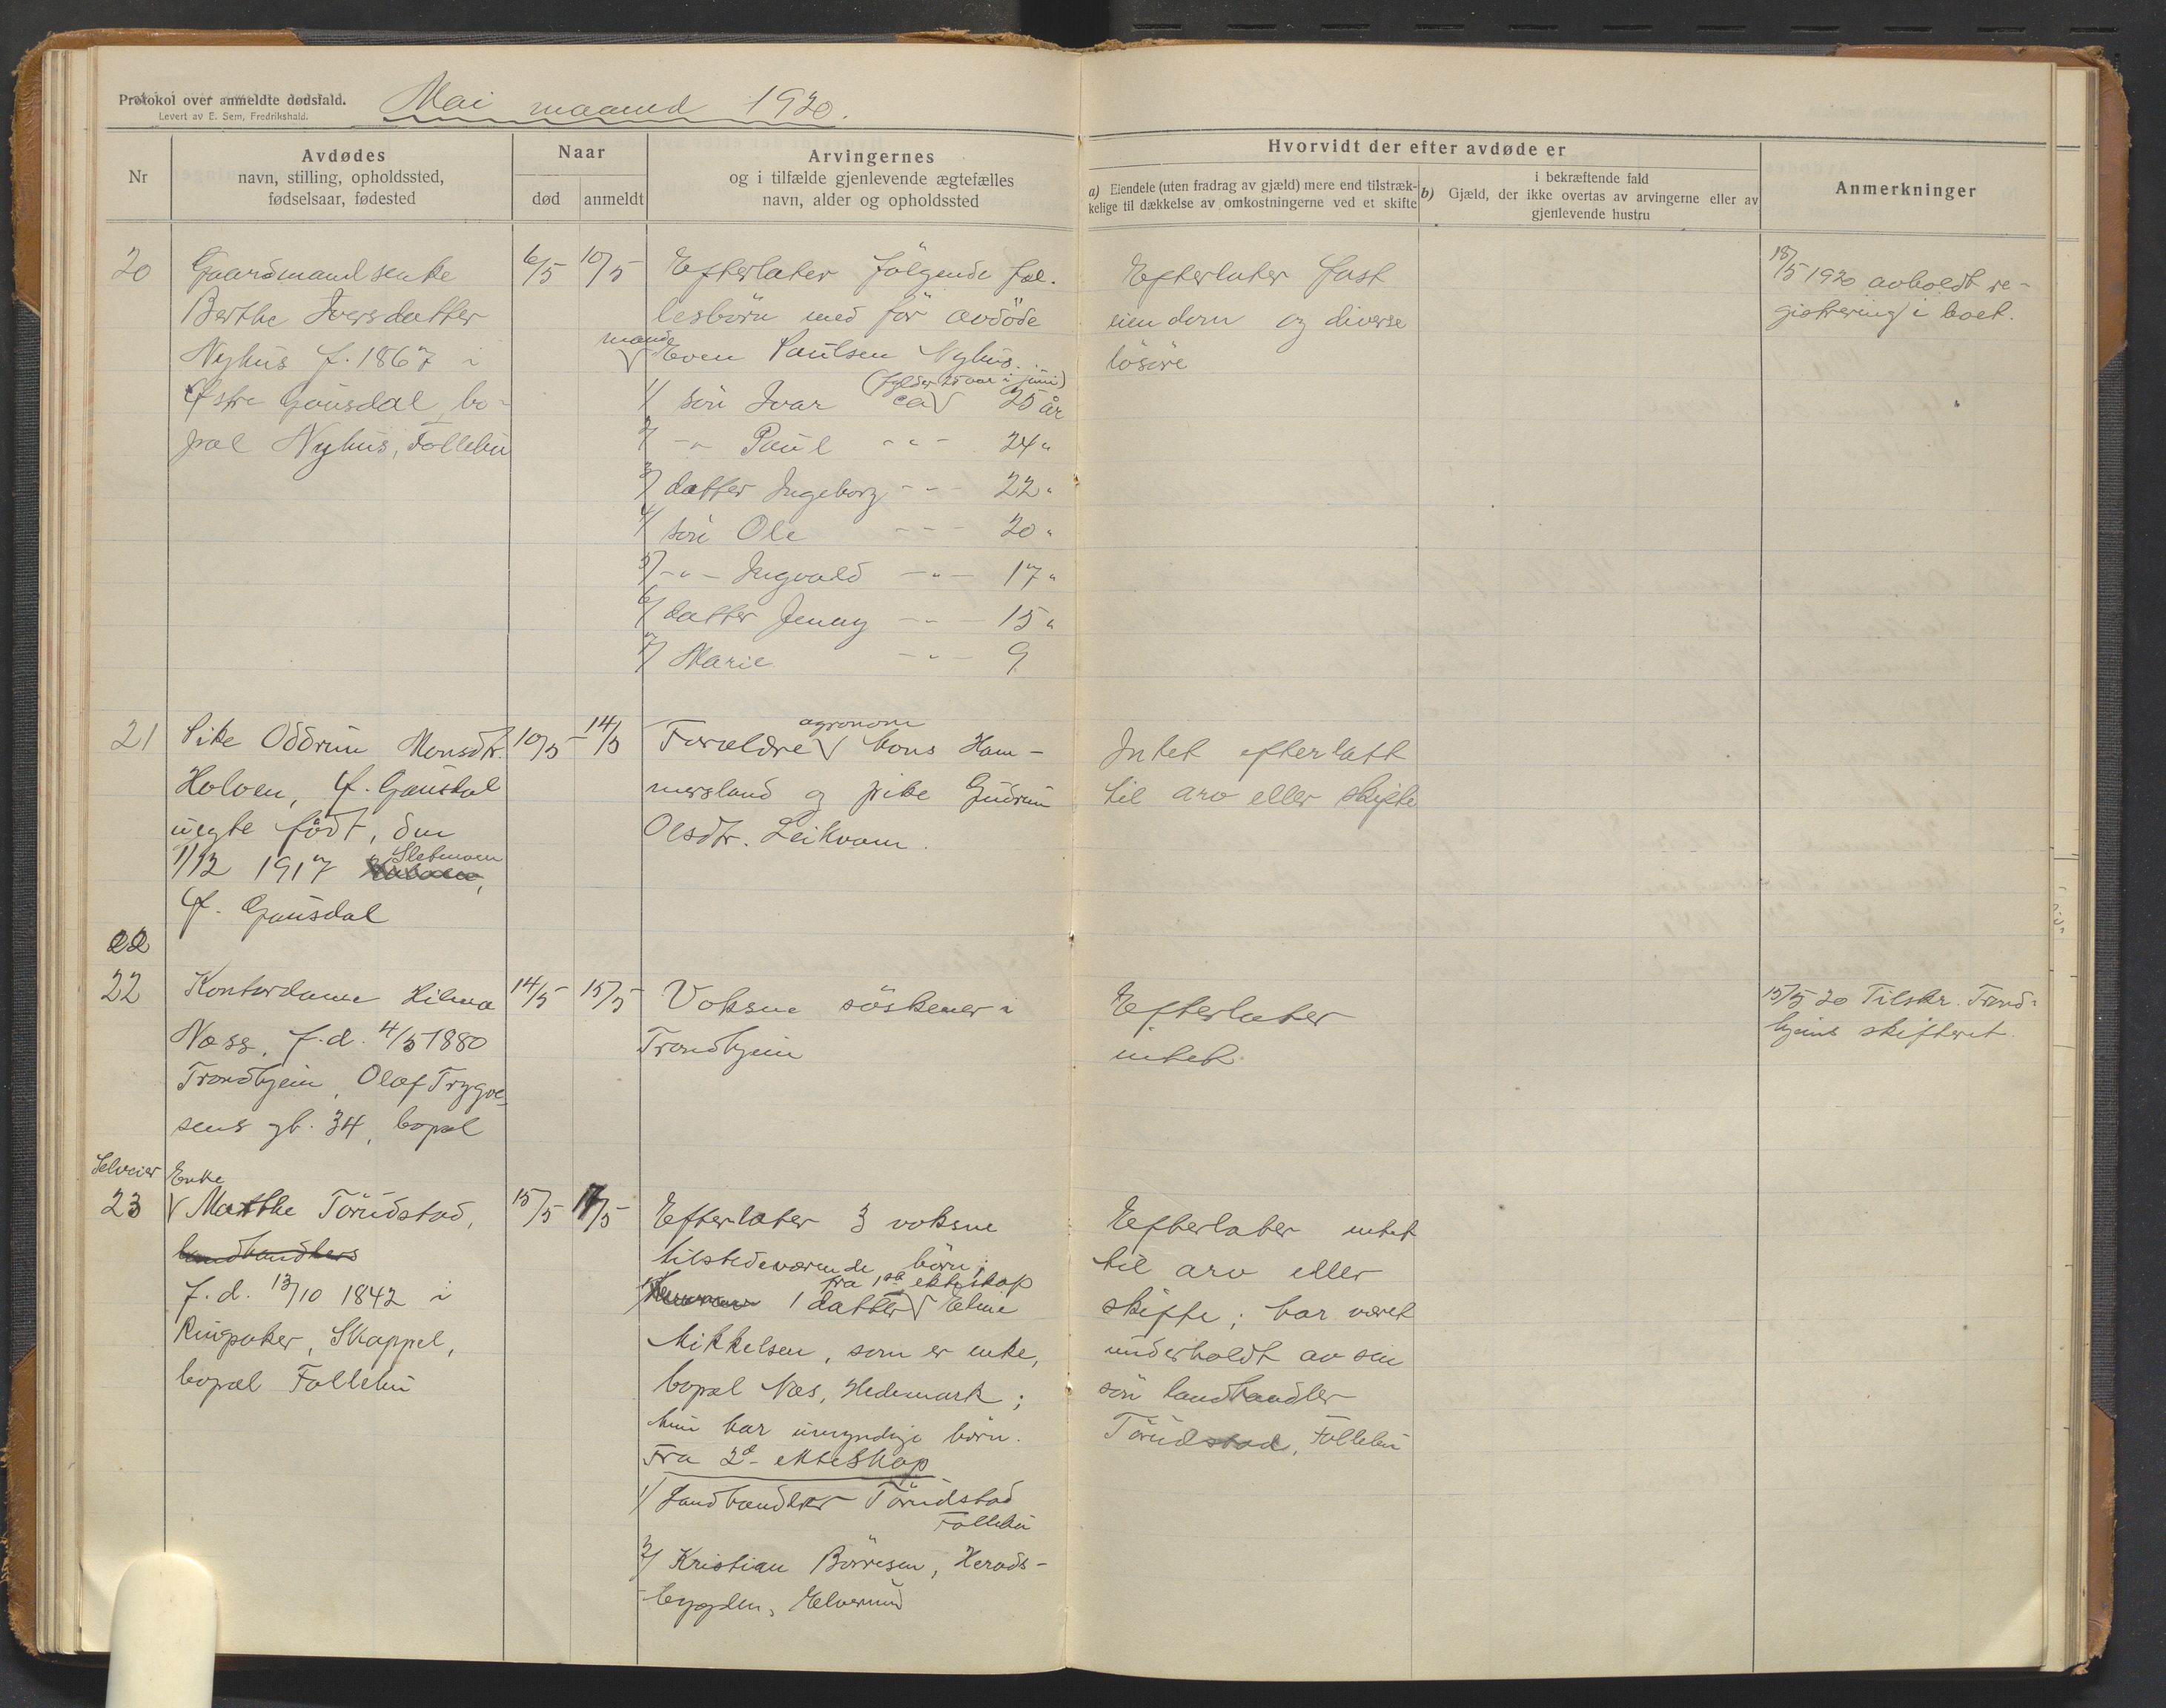 Protokol over anmeldte dødsfald.
Levert av E. Sem, Fredrikshald.
Mai maaned 1920.
Nr
Avdødes
navn, stilling, opholdssted,
fødselsaar, fødested
Naar
død
anmeldt
Arvingernes
og i tilfælde gjenlevende ægtefælles
navn, alder og opholdssted
Hvorvidt der efter avdøde er
a) Eiendele (uten fradrag av gjæld) mere end tilstræk-
kelige til dækkelse av omkostningerne ved et skifte
i bekræftende fald
b) Gjæld, der ikke overtas av arvingerne eller av
gjenlevende hustru
Anmerkninger
20
Gaardmandsenke
Berthe Iversdatter
Nyhus f. 1867 i
Østre Gausdal, bo-
pæl Nyhus, Follebu
6/5
10/5
Efterlater følgende fæl-
lesbørn med før avdøde
mand
Even Paulsen Nyhus.
(fylder 25 aar i juni)
1/ søn Ivar ca 25 år
2/ -"- Paul -"- 24 "
3/ datter Ingeborg -"- 22 "
4/ søn Ole -"- 20 "
5/ -"- Ingvald -"- 17 "
6/ datter Jenny -"- 15 "
7/ Marie -"- 9
Efterlater fast
eiendom og diverse
løsøre
18/5 1920 avholdt re-
gistrering i boet.
21
Pike Oddrun Monsdtr.
Holoen, Ø. Gausdal
uegte født, den
1/12 1917 Sletmoen
Ø. Gausdal
10/5
14/5
Forældre agronom Mons Ham-
mersland og pike Gudrun
Olsdtr. Leikvam.
Intet efterlatt
til arv eller skifte
22
22
Kontordame Hilma
Næss, f.d. 4/5 1880
Trondhjem, Olaf Trygve-
sens gt. 34, bopæl
14/5
15/5
Voksne søskener i
Trondhjem
Efterlater
intet
15/5 20 Tilskr. Trond-
hjems skifteret.
Selveier Enke
23
Marthe Tørudstad,
landhandlers
f.d. 13/10 1842 i
Ringsaker, Skappel,
bopæl Follebu
15/5
17/5
Efterlater 3 voksne
tilstedeværende børn;
fra 1ste ekteskap
1 datter Eline
Mikkelsen, som er enke,
bopæl Nes, Hedemark;
hun har umyndige børn.
Fra 2d ekteskap
1/ Landhandler Tørudstad
Follebu
2/ Kristian Børresen, Herads-
bygden, Elverum
Efterlater intet
til arv eller
skifte; har været
underholdt av sin
søn landhandler
Tørudstad, Follebu